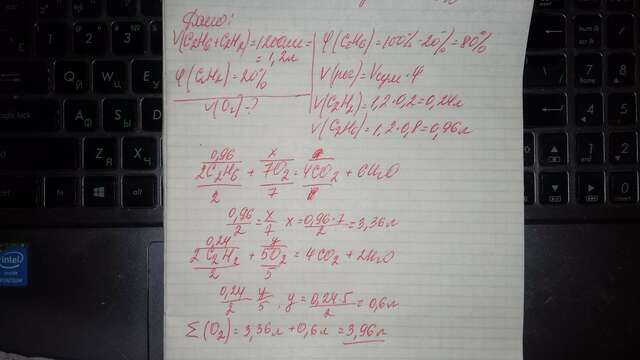 Дано:
V(C2H6+C2H2)=1200мл=
=1,2л
φ(C2H2)=20%
V(O2)-?
φ(C2H6)=100%-20%=80%
V(C2H2)=1,2·0,2=0,24л
V(C2H6)=1,2·0,8=0,96л
0,96 x
2C2H6 + 7O2 = 4CO2 + 6H2O
2 7
0,96/2 = x/7 x = 0,96·7/2 = 3,36л
0,24 y
2C2H2 + 5O2 = 4CO2 + 2H2O
2 5
0,24/2 y/5, y = 0,24·5/2 = 0,6л
Σ(O2) = 3,36л + 0,6л = 3,96л
intel